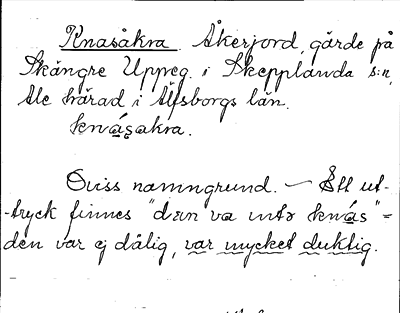 Knasåkra Åkerjord, gärde på
Skångre Uppeg. i Skepplanda s:n,
Ale härad i Älfsborgs län.
knásakra.
Oviss namngrund. — Ett ut-
-tryck finnes "dæn va intə knás" =
den var ej dålig, var mycket duktig.